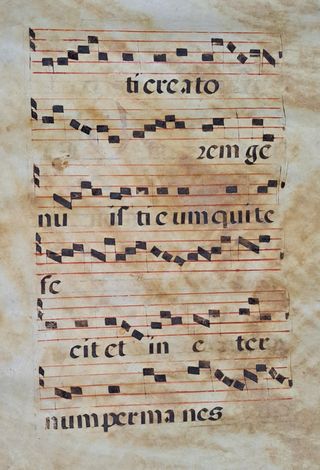 ti creato
rem ge
nu is ti eum qui te
fe
cit et in e ter
num perma nes